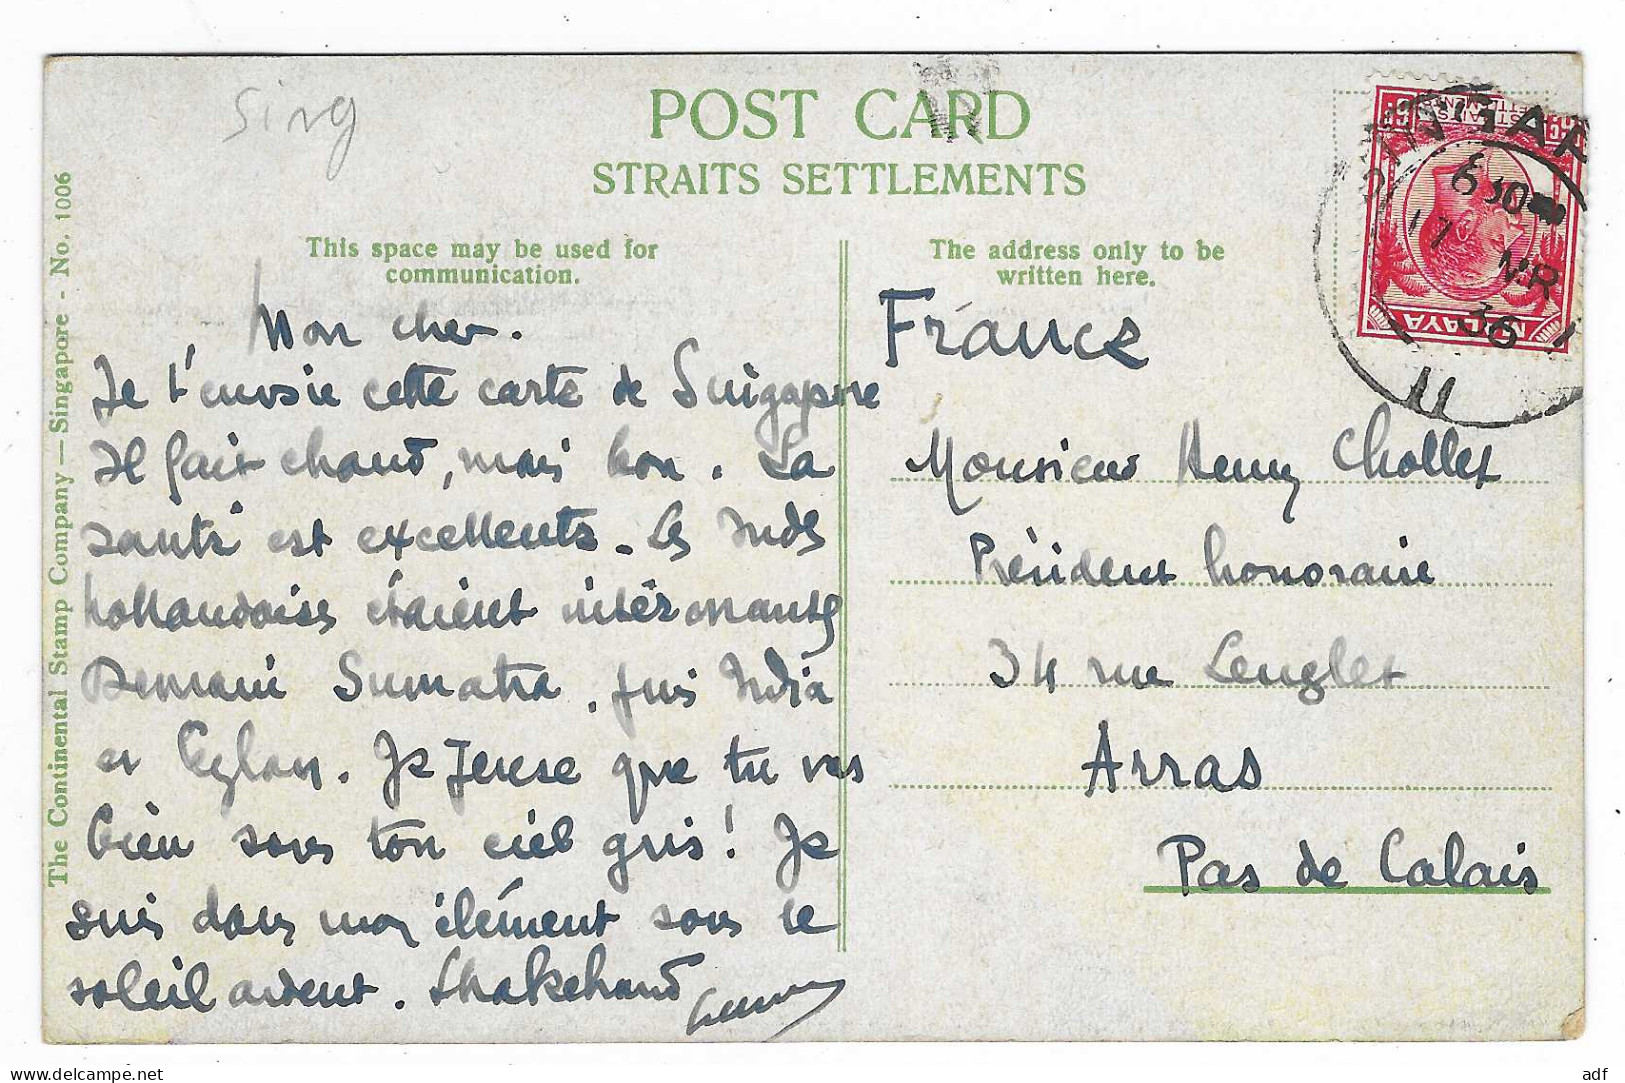 Sing
POST CARD
STRAITS SETTLEMENTS
The Continental Stamp Company — Singapore - No. 1006
This space may be used for
communication.
Mon cher.
Je t'envoie cette carte de Singapore
Il fait chaud, mais bon. La
santé est excellente. Les Indes
hollandaises étaient intéressantes
Demain Sumatra. puis India
et Ceylan. Je pense que tu vas
bien sous ton ciel gris! Je
suis dans mon élément sous le
soleil ardent. Shakehand
The address only to be
written here.
France
Monsieur Henry Chollet
Président honoraire
34 rue Lenglet
Arras
Pas de Calais
STRAITS
SETTLEMENTS
6c 6c
MALAYA
SINGAP
6 30
17 MR
36
delcampe.net
adf